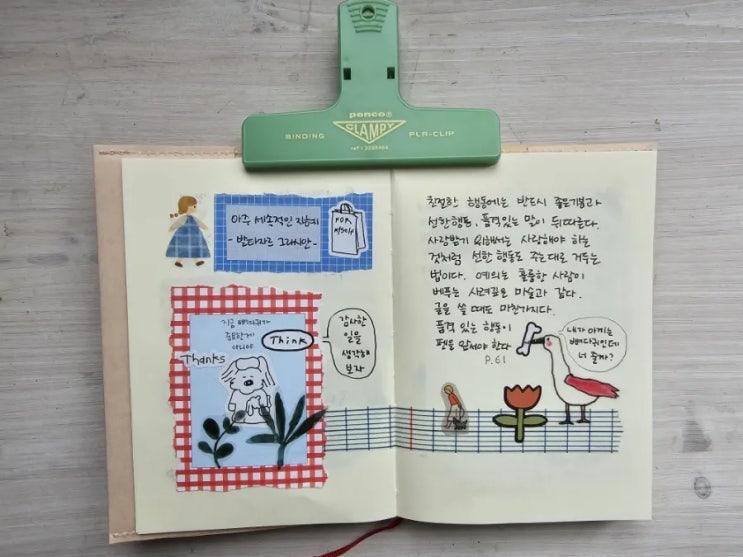 penco®
CLAMPY
BINDING
PLA-CLIP
아주 세속적인 지혜
- 발타자르 그라시안 -
FOR
MYSELF
지금 뼈다귀가
중요한게
아니야
Think
Thanks
감사한
일을
생각해
보자
친절한 행동에는 반드시 좋은기분과
선한행동, 품격있는 말이 뒤따른다.
사랑받기 위해서는 사랑해야 하는
것처럼 선한 행동도 주는대로 거두는
법이다. 예의는 훌륭한 사람이
베푸는 사려깊은 마술과 같다.
글을 쓸 때도 마찬가지다.
품격 있는 행동이
펜을 앞서야 한다
P.61
내가 아끼는
뼈다귀인데
너 줄까?